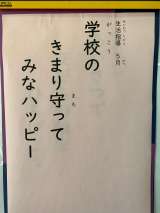 生活指導 5月
学校の
きまり守って
みなハッピー